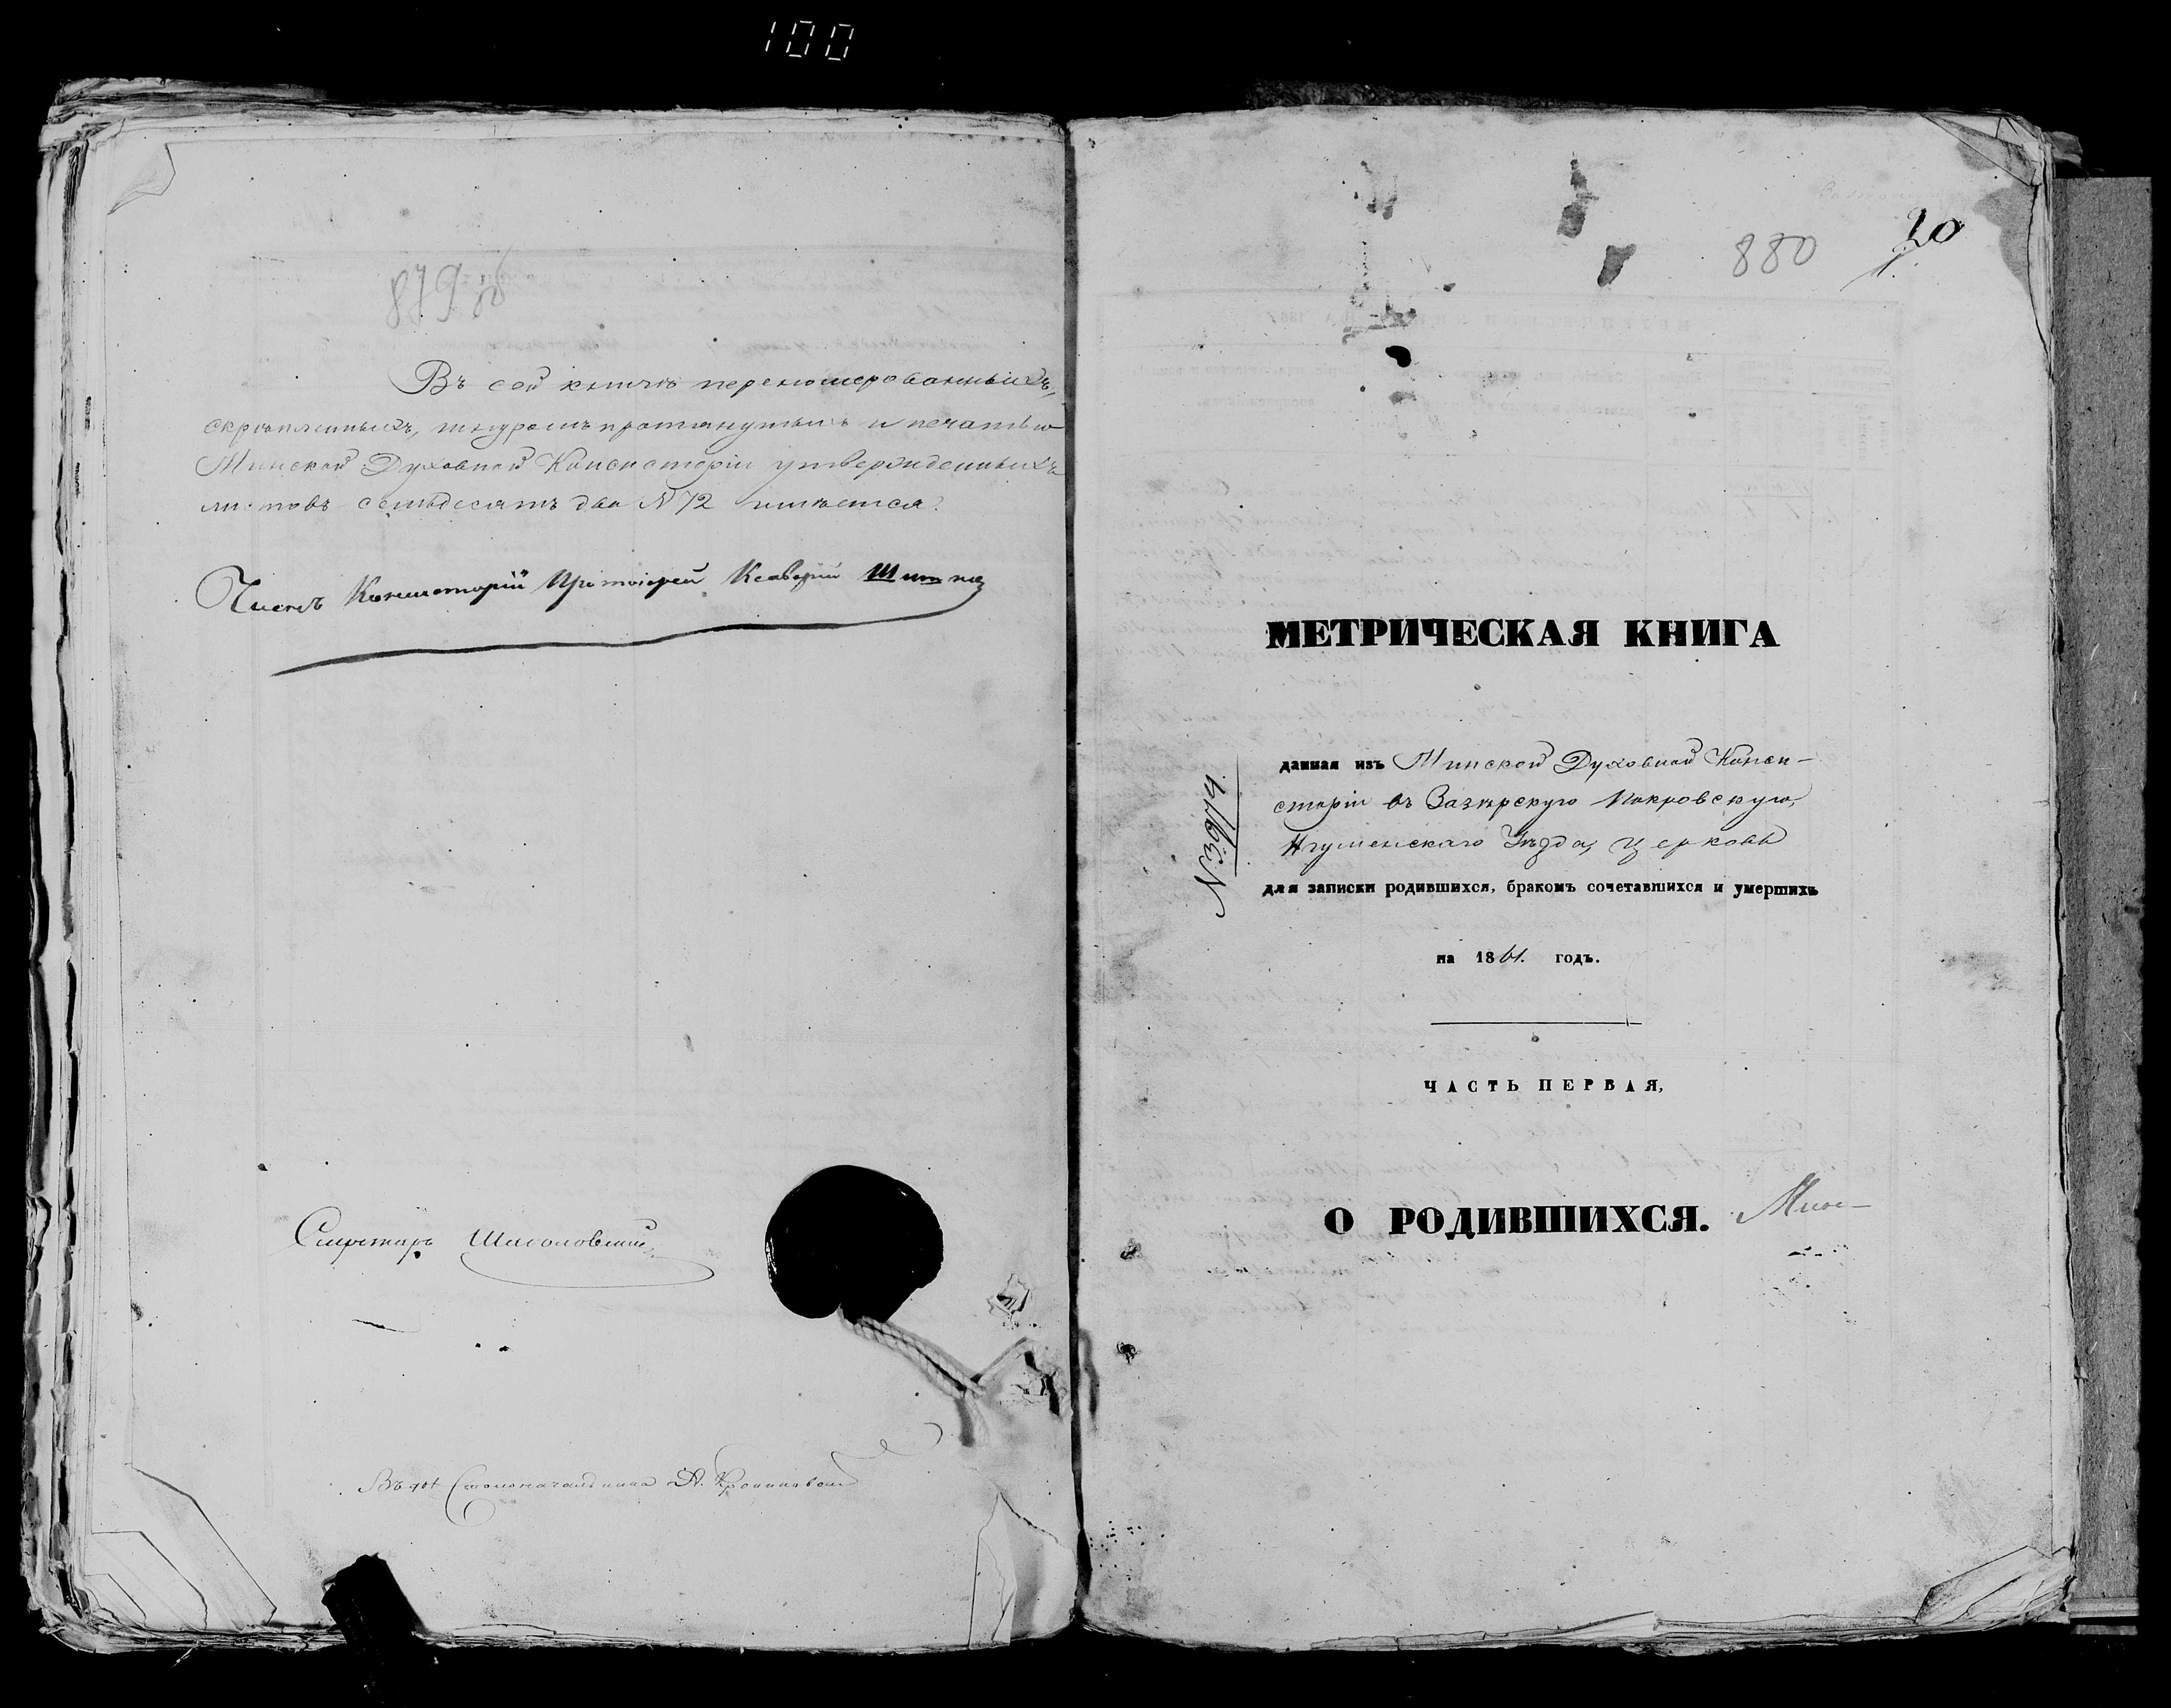 100
879 об
Въ сей книгѣ перенумерованныхъ,
скрѣпленныхъ, шнуромъ протянутыхъ и печатью
Минской Духовной Консисторіи утвержденныхъ
листовъ семьдесятъ два N 72 имѣется.
Членъ Консисторіи Протоіерей Ксаверій
Секретарь
Столоначальника А.
880 20
МЕТРИЧЕСКАЯ КНИГА
данная изъ Минской Духовной Конси-
сторіи въ Зазѣрскую Покровскую,
Игуменскаго Уѣзда, церковь
N 3974.
для записки родившихся, бракомъ сочетавшихся и умершихъ
на 1861. годъ.
ЧАСТЬ ПЕРВАЯ,
О РОДИВШИХСЯ. Мин-